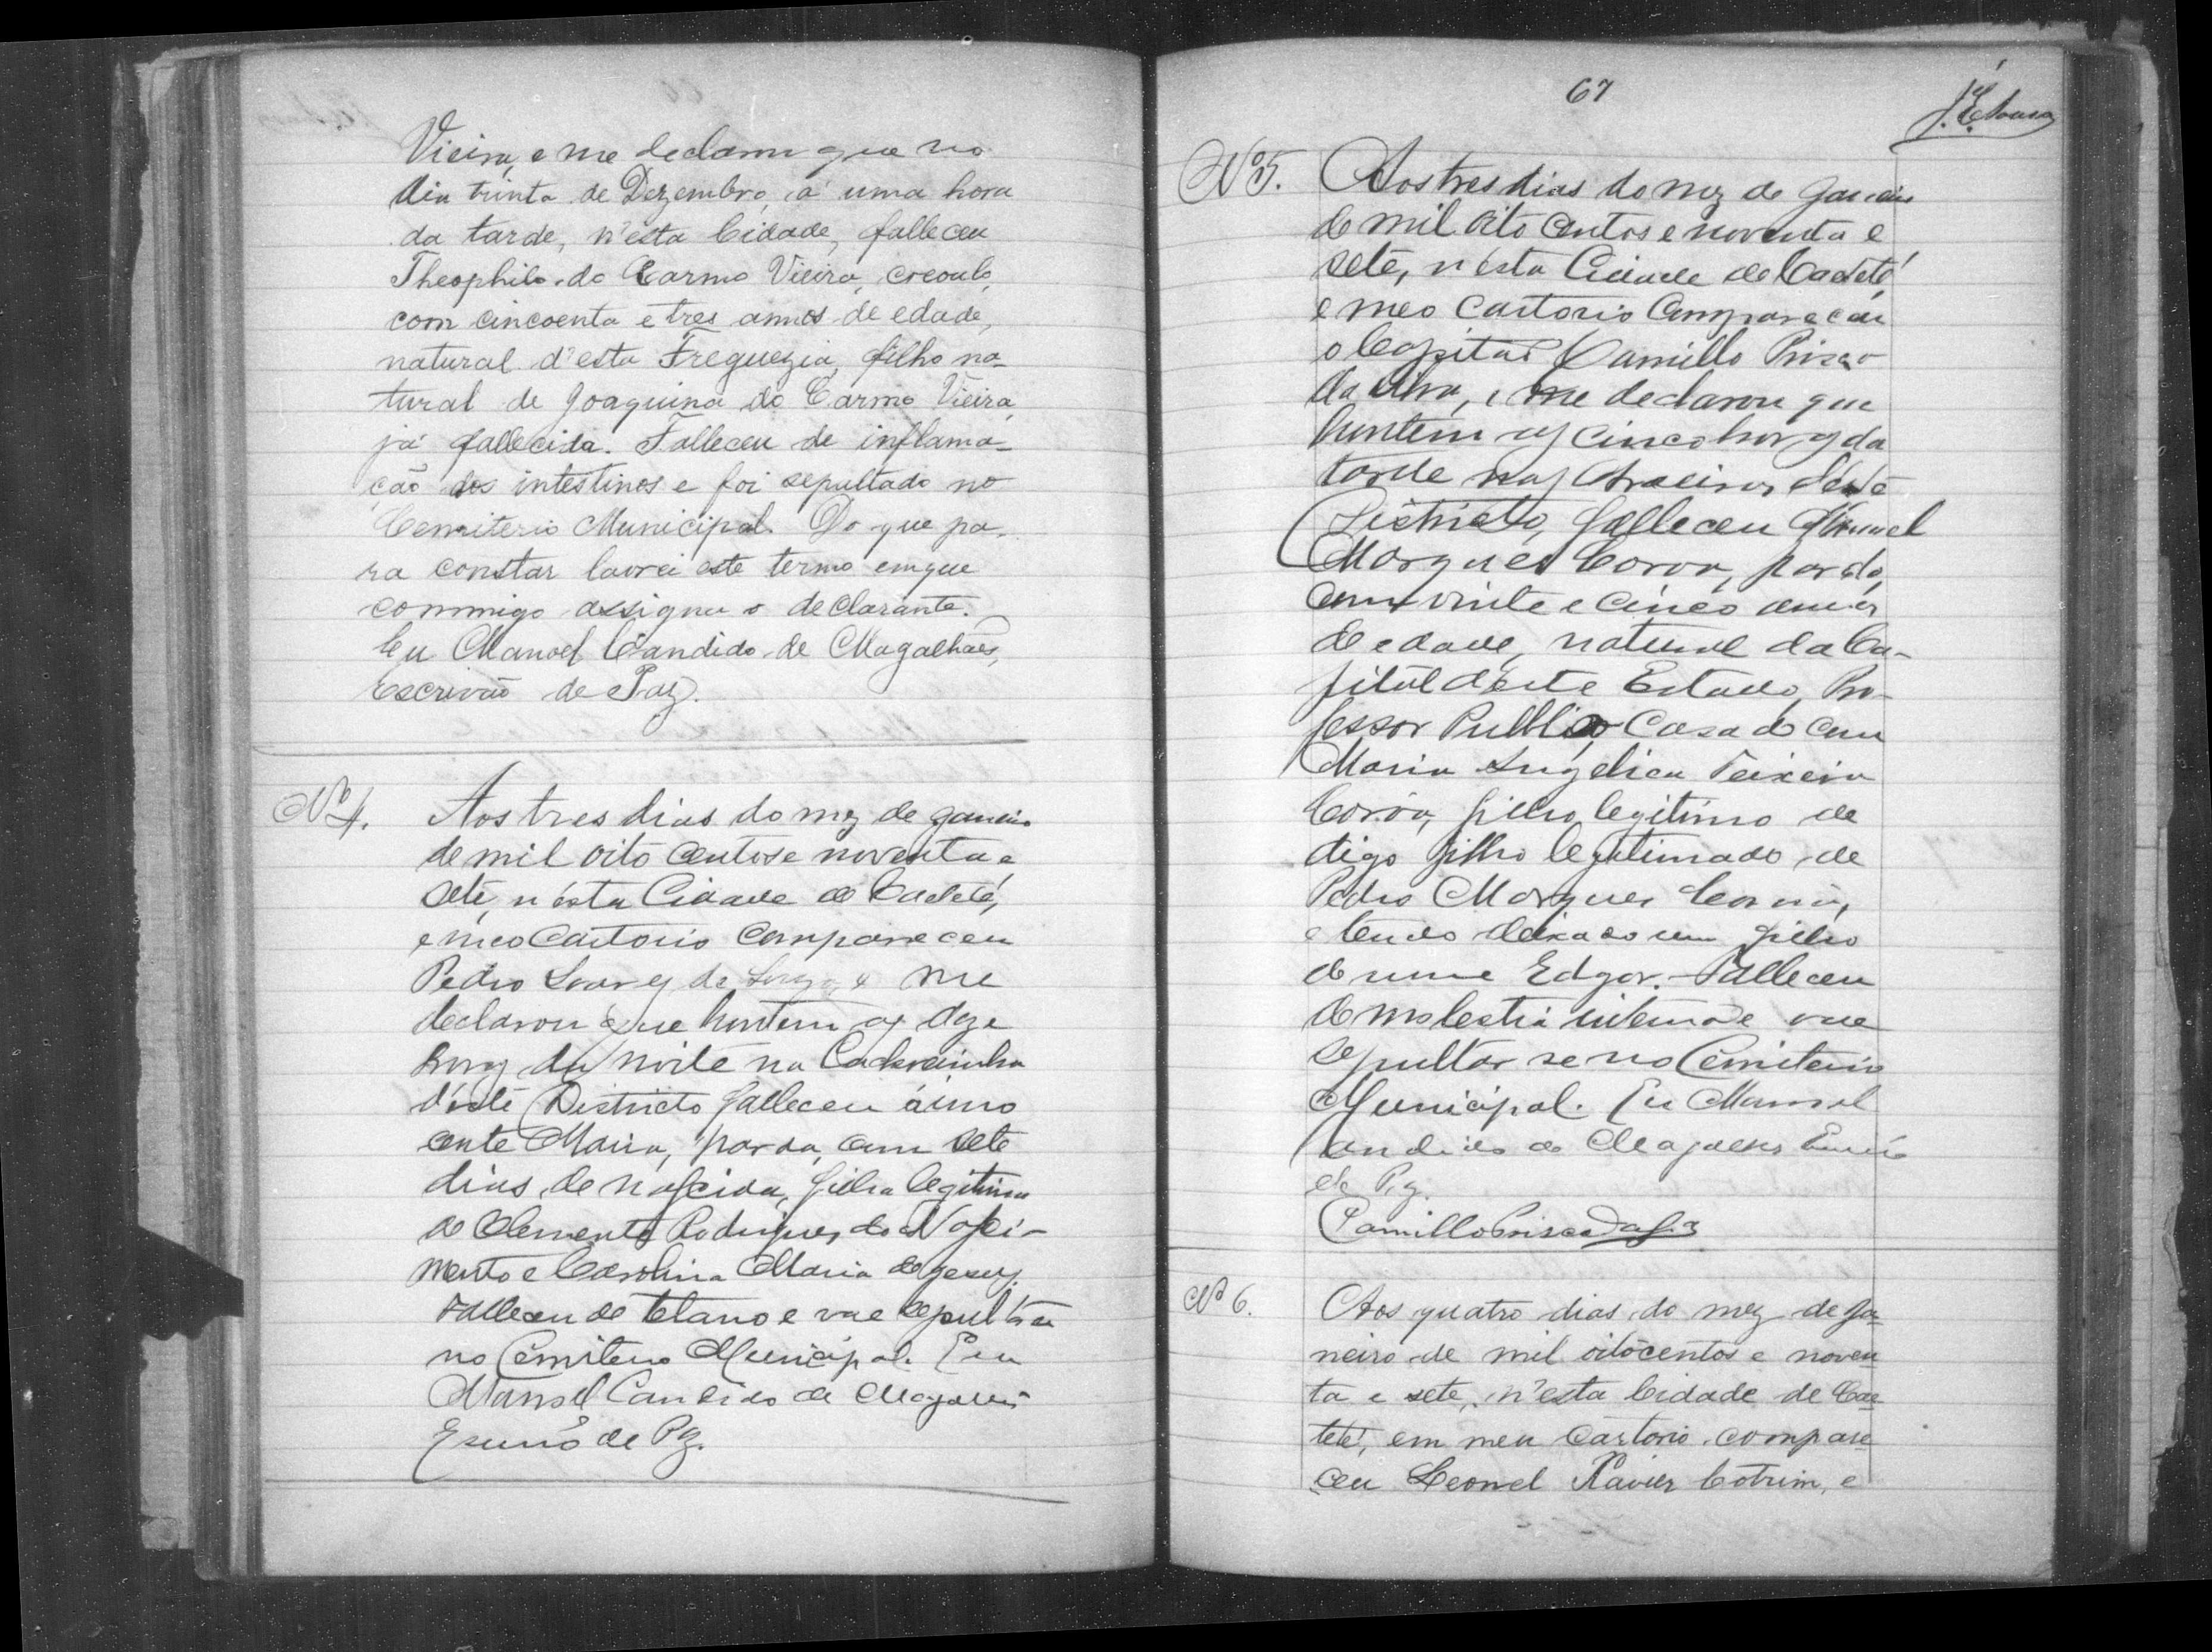 Vieira, e me declarou que no
dia trinta de Dezembro, á uma hora
da tarde, n'esta Cidade, falleceu
Theophilo do Carmo Vieira, creoulo,
com cincoenta e tres annos de edade,
natural d'esta Freguezia, filho na-
tural de Joaquina do Carmo Vieira,
já fallecida. Falleceu de inflama-
ção dos intestinos e foi sepultado no
Cemiterio Municipal. Do que pa-
ra constar lavrei este termo em que
commigo assigna o declarante.
Eu Manoel Candido de Magalhães,
Escrivão de Paz.
Nº 4. Aos tres dias do mez de Janeiro
de mil oito centos e noventa e
sete, n'esta Cidade de Caeteté,
e meo Cartorio compareceu
Pedro de e me
declarou que hontem as doze
horas da noite na
d'este Districto falleceu a inno
cente Maria, parda, com sete
dias de nascida, filha legitima
de Clemente Rodrigues do Nasci-
mento e Carolina Maria de Jesus.
Falleceu de tetano e vae sepultar se
no Cemiterio Municipal. Eu
Manoel Candido de Magalhães
Escrivão de Paz.
67
Nº 5. Aos tres dias do mez de Janeiro
de mil oito centos e noventa e
sete, n'esta Cidade de Caeteté,
e meo Cartorio compareceu
o Capitão Camillo Prisco
da Silva, e me declarou que
hontem as cinco horas da
tarde nas deste
Districto, falleceu Manoel
Marques, pardo,
com vinte e cinco annos
de edade, natural da Ca-
pital d'este Estado, Pro-
fessor Publico, casado com
Maria Angelica Teixeira
filho legitimo de
digo filho legitimado de
Pedro Marques
e tendo deixado um filho
de nome Edgar. Falleceu
de molestia interna e vae
sepultar se no Cemiterio
Municipal. Eu Manoel
Candido de Magalhães Escrivão
de Paz.
Camillo Prisco da Sª
Nº 6. Aos quatro dias do mez de Ja-
neiro de mil oitocentos e noven
ta e sete, n'esta Cidade de Cae-
teté, em meu cartorio compare-
ceu Leonel Xavier Cotrim, e